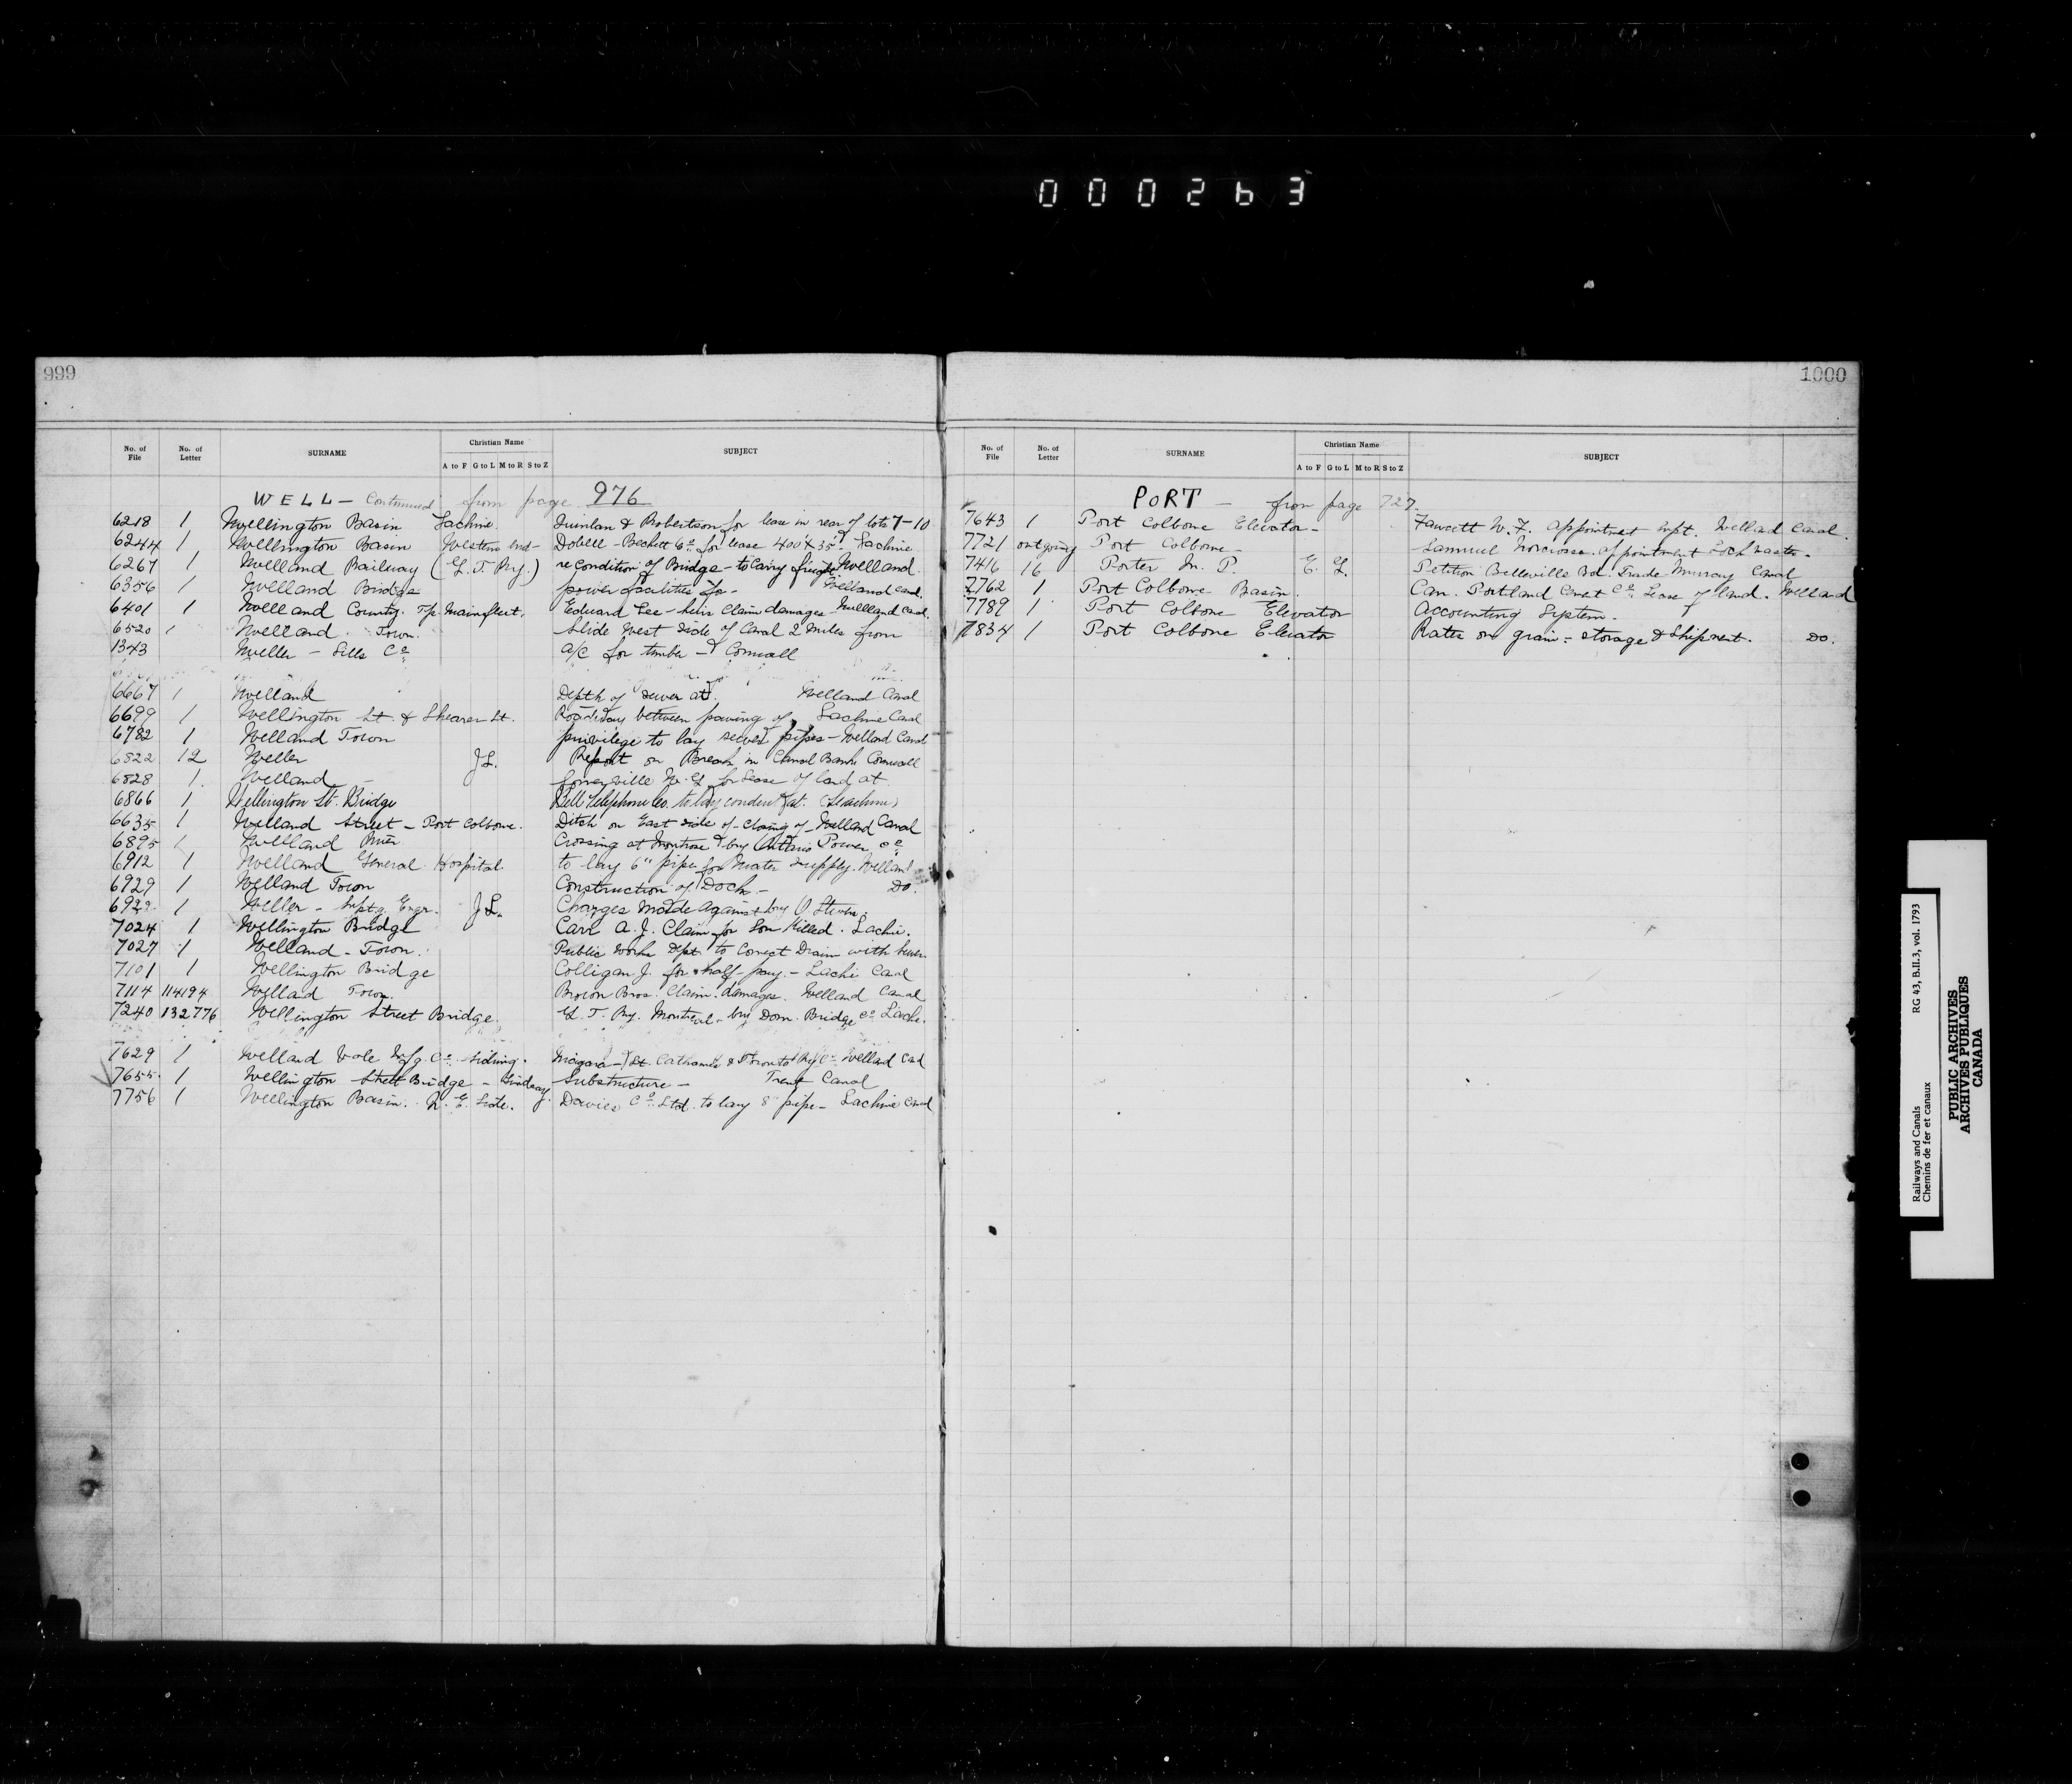 000263
999
No. of File No. of Letter SURNAME Christian Name A to F G to L M to R S to Z SUBJECT
WELL — Continued from page 976
6218 1 Wellington Basin Lachine. Quinlan & Robertson for lease in rear of lots 7-10
6244 1 Wellington Basin Western end - Dobell - Beckett Co. for lease 400' x 35' Lachine
6267 1 Welland Railway (G. T. Ry.) re Condition of Bridge - to Carry freight Welland
6356 1 Welland Bridge power facilities for - Welland Canl.
6401 1 Welland County. Tp. Wainfleet. Edward Lee - heirs Claim damages - Welland Canl.
6520 1 Welland Town. Slide West side of Canal 2 miles from
1343 Weller - Sills Co. A/C for timber - Cornwall
6667 1 Welland Depth of sewer at. Welland Canal
6699 1 Wellington St. & Shearer St. Roadway between paving of, Lachine Canal
6782 1 Welland Town privilege to lay sewer pipes - Welland Canal
6822 12 Weller J L. Report on Break in Canal Bank Cornwall
6828 1 Welland - W. G. for Lease of land at
6866 1 Wellington St. Bridge Bell Telephone Co. to lay conduit at. (Lachine)
6635 1 Welland Street - Port Colborne. Ditch on East side of - Closing of - Welland Canal
6895 1 Welland River Crossing at Montrose by Ontario Power Co.
6912 1 Welland General Hospital to lay 6" pipe for Water supply. Welland
6929 1 Welland Town Construction of Dock - Do.
6922 1 Weller - Suptg. Engr. J L. Charges made against by O. Stevens.
7024 1 Wellington Bridge Carr A. J. Claim for Son Killed. Lachi.
7027 1 Welland - Town. Public Works Dept. to Connect Drain with Sewer
7101 1 Wellington Bridge Colligan J. for half-pay. - Lachi Canal
7114 114194 Welland Town. Brown Bros. Claim damages. Welland Canal
7240 132776 Wellington Street Bridge. G. T. Ry. Montreal - by Dom. Bridge Co. Lachi.
7629 1 Welland Vale Mfg. Co. siding. Niagara - St. Catharines & Toronto Ry Co. Welland Cnl
7655 1 Wellington Street Bridge - Lindsay. Substructure - Trent Canal
7756 1 Wellington Basin. N. E. Side. Davies Co. Ltd. to lay 8" pipe - Lachine Canal
1000
No. of File No. of Letter SURNAME Christian Name A to F G to L M to R S to Z SUBJECT
PORT — from page 727.
7643 1 Port Colborne Elevator - Fawcett W. F. appointment Supt. Welland Canal.
7721 outgoing Port Colborne - Samuel Norcross. appointment Lockmaster.
7416 16 Porter M. P. E. G. Petition Belleville Bd. Trade Murray Canal
7762 1 Port Colborne Basin. Can. Portland Cement Co. Lease of land. Welland
7789 1 Port Colborne Elevator Accounting System.
7834 1 Port Colborne Elevator Rates on grain - storage & Shipment. Do.
Railways and Canals RG 43, B.II.3, vol. 1793
Chemins de fer et canaux
PUBLIC ARCHIVES
ARCHIVES PUBLIQUES
CANADA